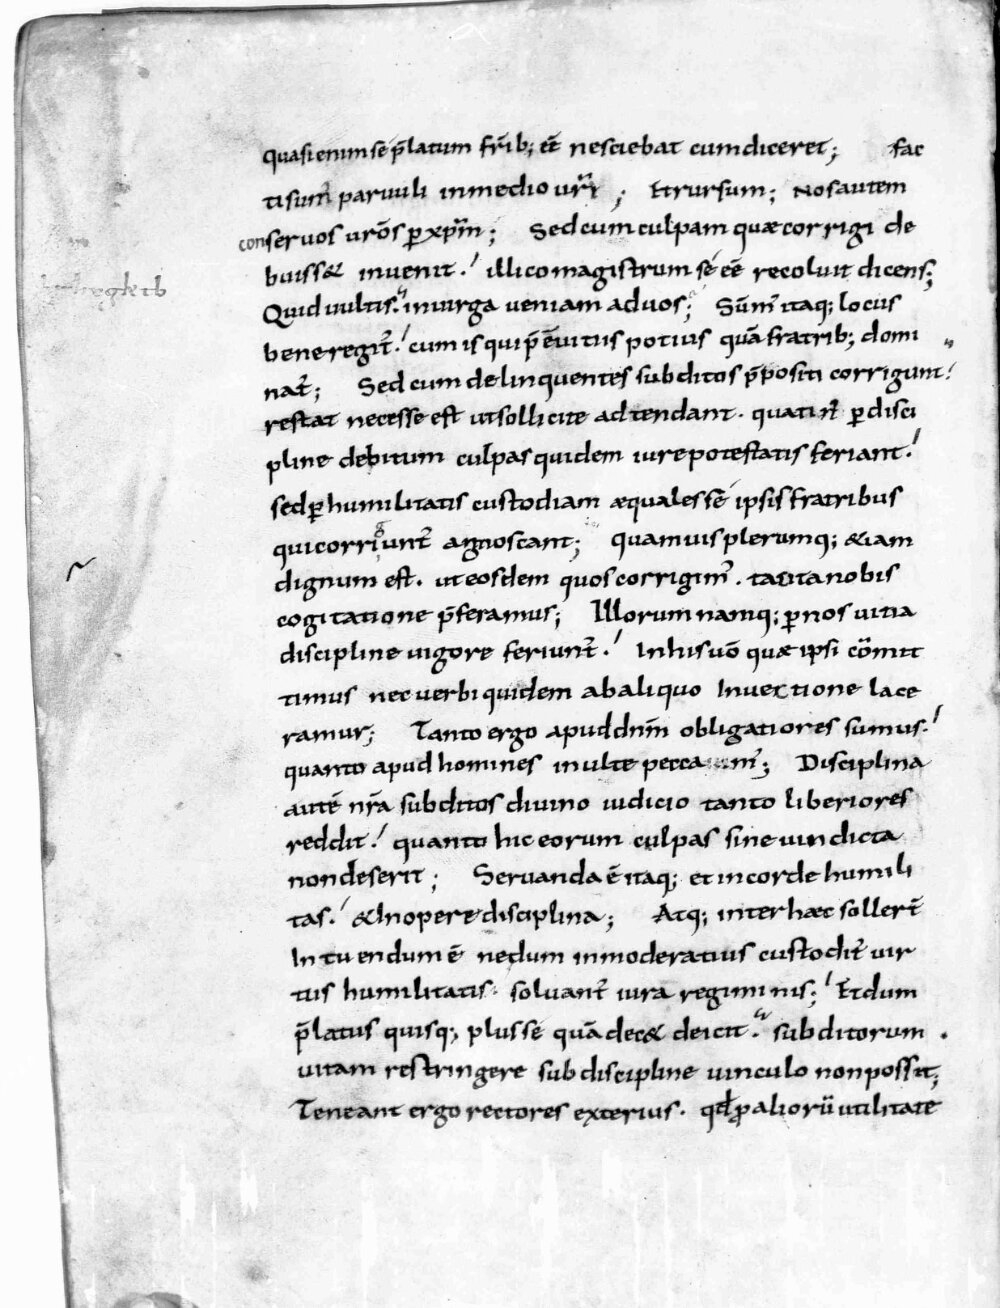 quasi enim se p̄latum fr̄ib; eē̄ nesciebat cum diceret; Fac
ti sum᷒ paruuli in medio ur̄i; Et rursum; Nos autem
conseruos ur̄os ꝑ xp̄m; Sed cum culpam quæ corrigi de
buiss& inuenit. illico magistrum se eē recoluit dicens;
Quid uultis. in uirga ueniam ad uos; Sūm᷒ itaq; locus
bene regit᷒. cum is qui p̄ē uitiis potius quā fratrib; domi
nat᷒; Sed cum delinquentes subditos p̄positi corrigunt.
restat necesse est ut sollicite adtendant. quatin᷒ ꝑ disci
pline debitum culpas quidem iure potestatis feriant.
sed ꝑ humilitatis custodiam æquales se ipsis fratribus
qui corriguunt᷒ agnoscant; quamuis plerumq; &iam
dignum est. ut eosdem quos corrigim᷒. tacita nobis
cogitatione p̄feramus; Illorum namq; ꝑ nos uitia
discipline uigore feriunt᷒. In his uō quæ ipsi cōmit
timus nec uerbi quidem ab aliquo Inuectione lace
ramur; Tanto ergo apud dn̄m obligatiores sumus.
quanto apud homines inulte peccam᷒; Disciplina
autē nr̄a subditos diuino iudicio tanto liberiores
reddit. quanto hic eorum culpas sine uindicta
non deserit; Seruanda ē itaq; et in corde humili
tas. & In opere disciplina; Atq; inter hæc sollert᷒
Intuendum ē ne dum inmoderatius custodit᷒ uir
tus humilitatis. soluant᷒ iura regiminis; Et dum
p̄latus quisq; plus se quā dec& deicit. subditorum
uitam restringere sub discipline uinculo non possit;
Teneant ergo rectores exterius. qd̄ ꝓ aliorū utilitate